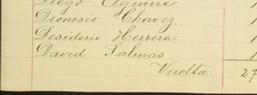 Diego Aguirre
Dionesio Chavez.
Desiderio Herrera
David Salinas
Vuelta. 27